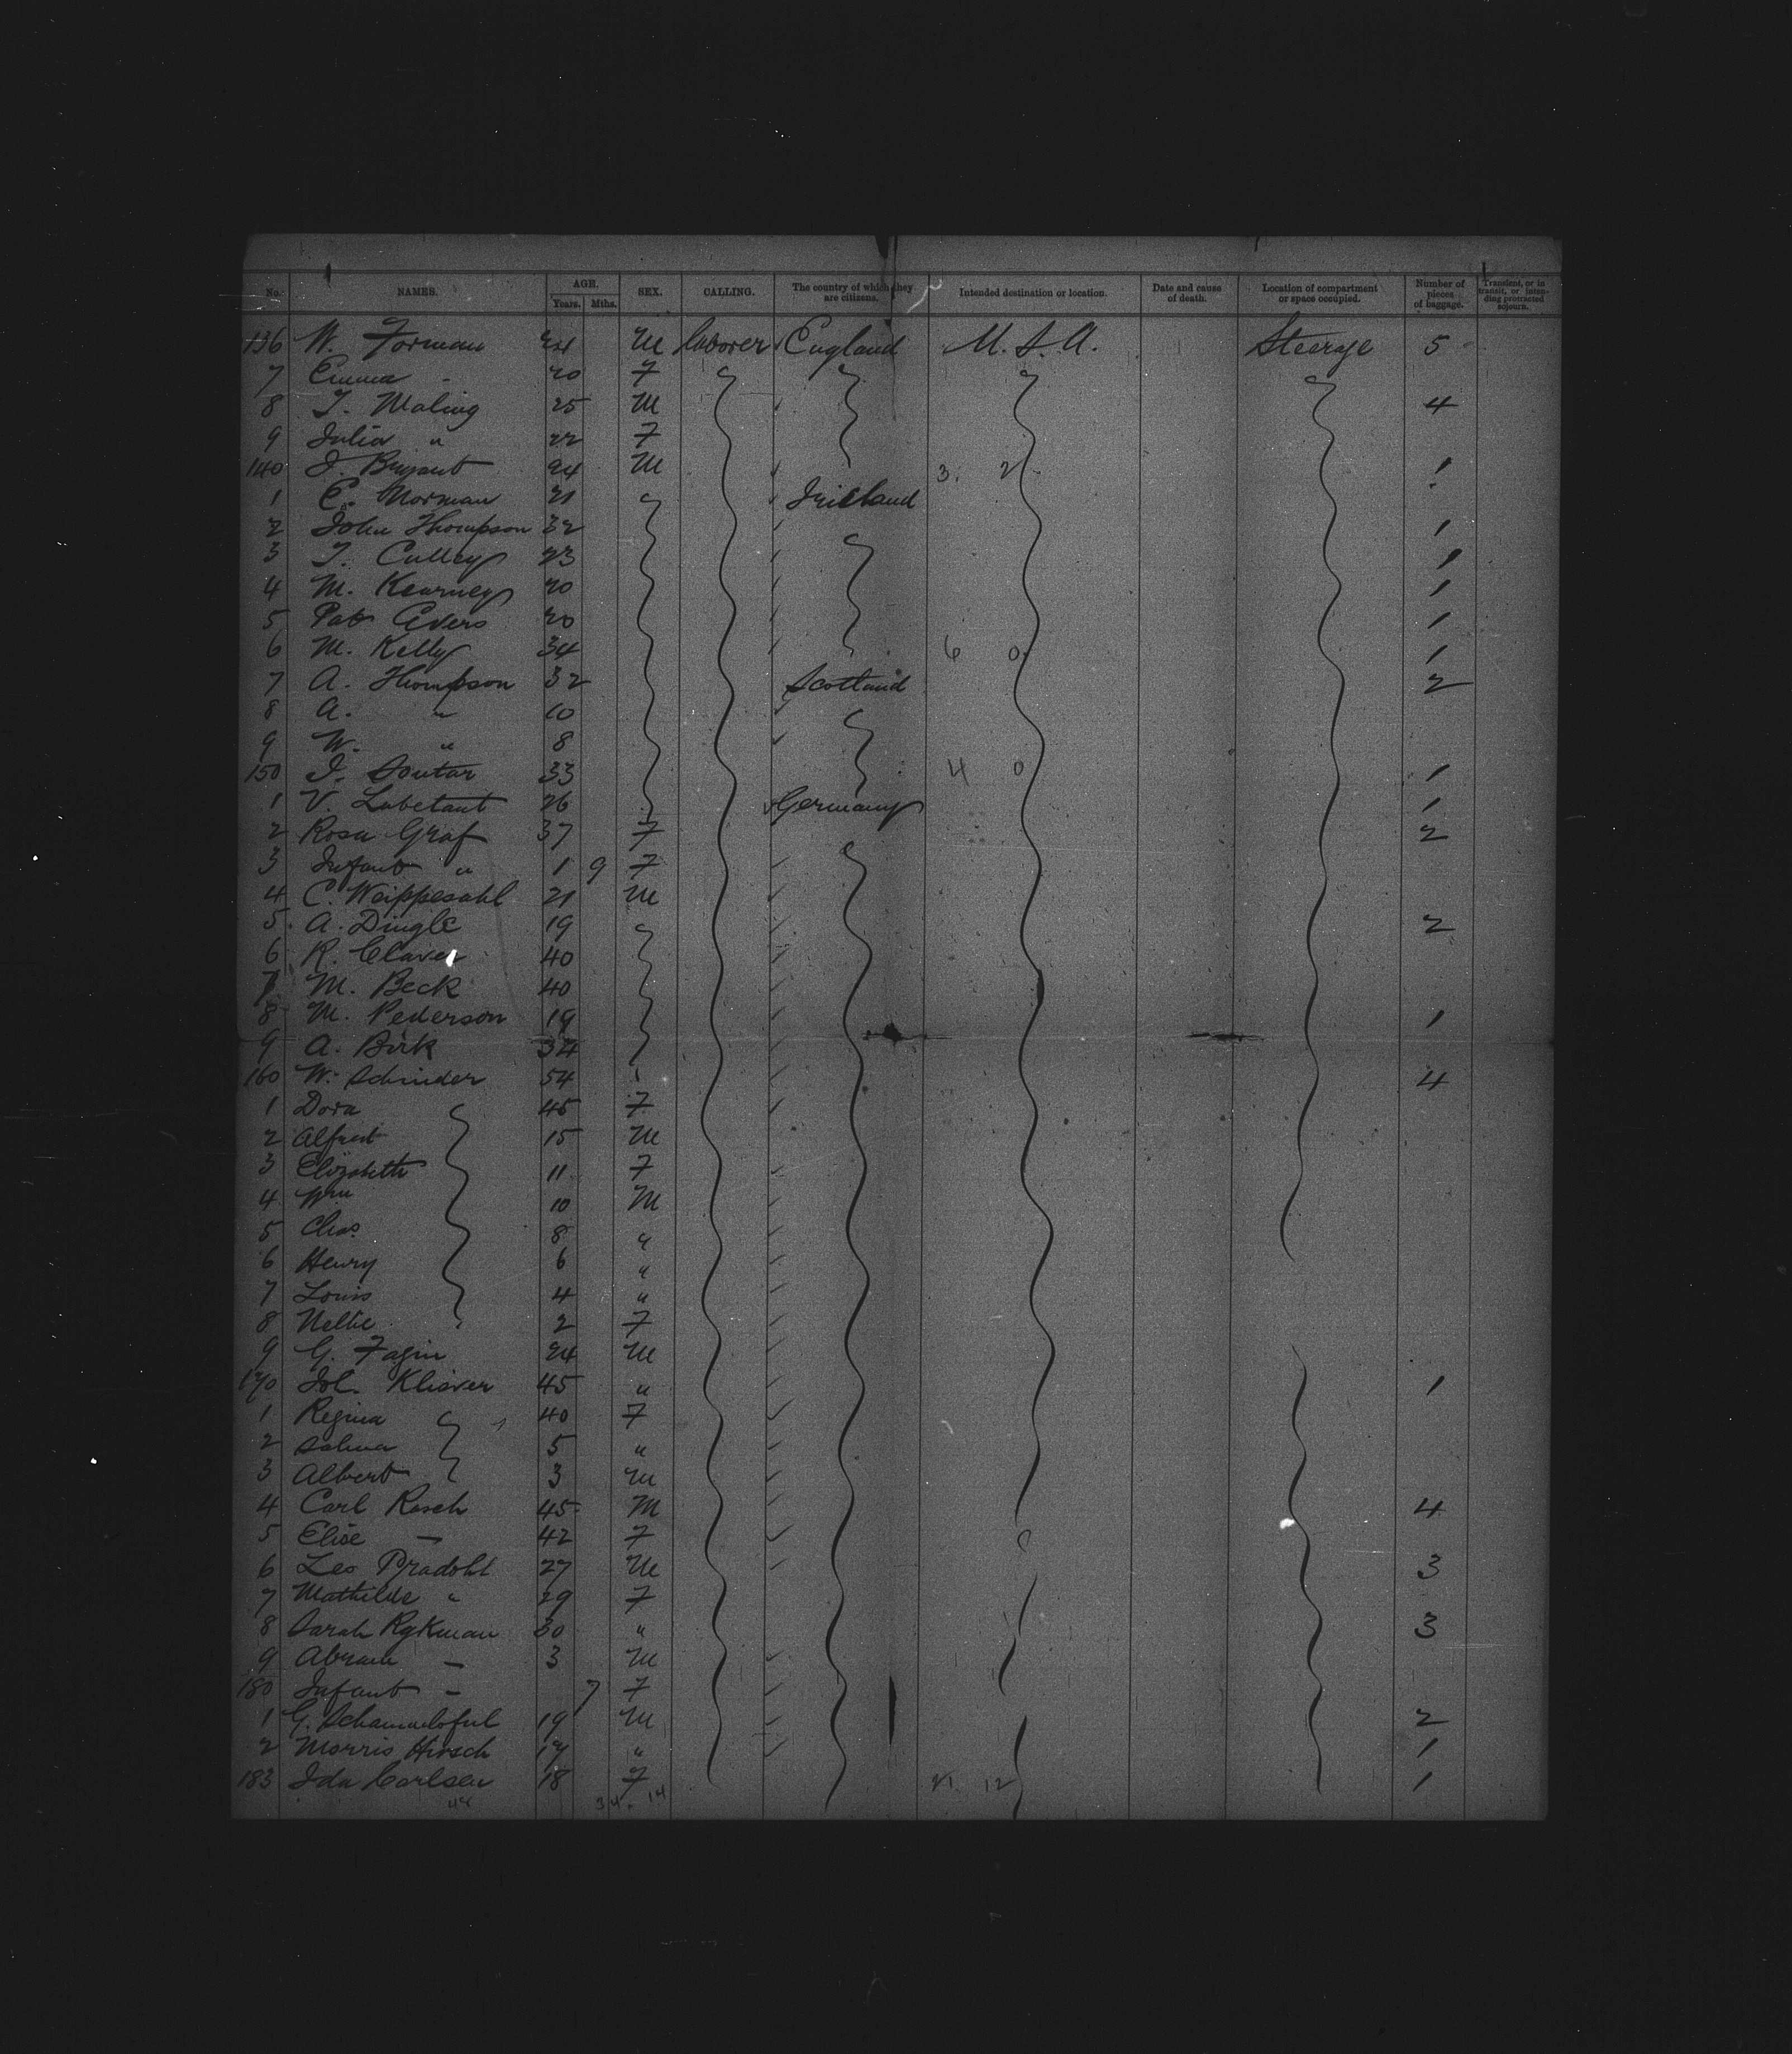 No. NAMES. AGE. Years. Mths. SEX. CALLING. The country of which they are citizens. Intended destination or location. Date and cause of death. Location of compartment or space occupied. Number of pieces of baggage. Transient, or in transit, or intending protracted sojourn.
136 W. Forman 24 M laborer England U.S.A. Stearage 5
7 Emma 20 F
8 T. Maling 25 M 4
9 Julia " 22 F
140 J. Bryant 24 M 3. 2 1
1 E. Norman 21 Irieland
2 John Thompson 32 1
3 T. Culley 23 1
4 M. Kearney 20 1
5 Pat 20 1
6 M. Kelly 34 6 0 1
7 A. Thompson 32 Scotland 2
8 A. " 10
9 W. " 8
150 J. Soutar 33 4 0 1
1 V. Labetant 26 Germany 1
2 Rosa Graf 37 F 2
3 Infant " 1 9 F
4 C. Weippesahl 21 M
5 A. Dingle 19 2
6 R. 40
7 M. Beck 40
8 M. Pederson 19 1
9 A. Birk 34
160 W. Schnider 54 4
1 Dora 45 F
2 Alfred 15 M
3 Elizabeth 11 F
4 Wm 10 M
5 Chas. 8 "
6 Henry 6 "
7 Louis 4 "
8 Nellie 2 F
9 G. Fagin 24 M
170 Kliaver 45 " 1
1 Regina 40 F
2 Salma 5 "
3 Albert 3 M
4 Carl Rasch 45 M 4
5 Elise — 42 F
6 Leo Pradohl 27 M 3
7 Mathilde " 29 F
8 Sarah Rykman 30 " 3
9 Abram — 3 M
180 Infant — 7 F
1 G. 19 M 2
2 Morris Hirsch 17 " 1
183 Ida Carlsen 18 F 21. 12 1
48 34. 14